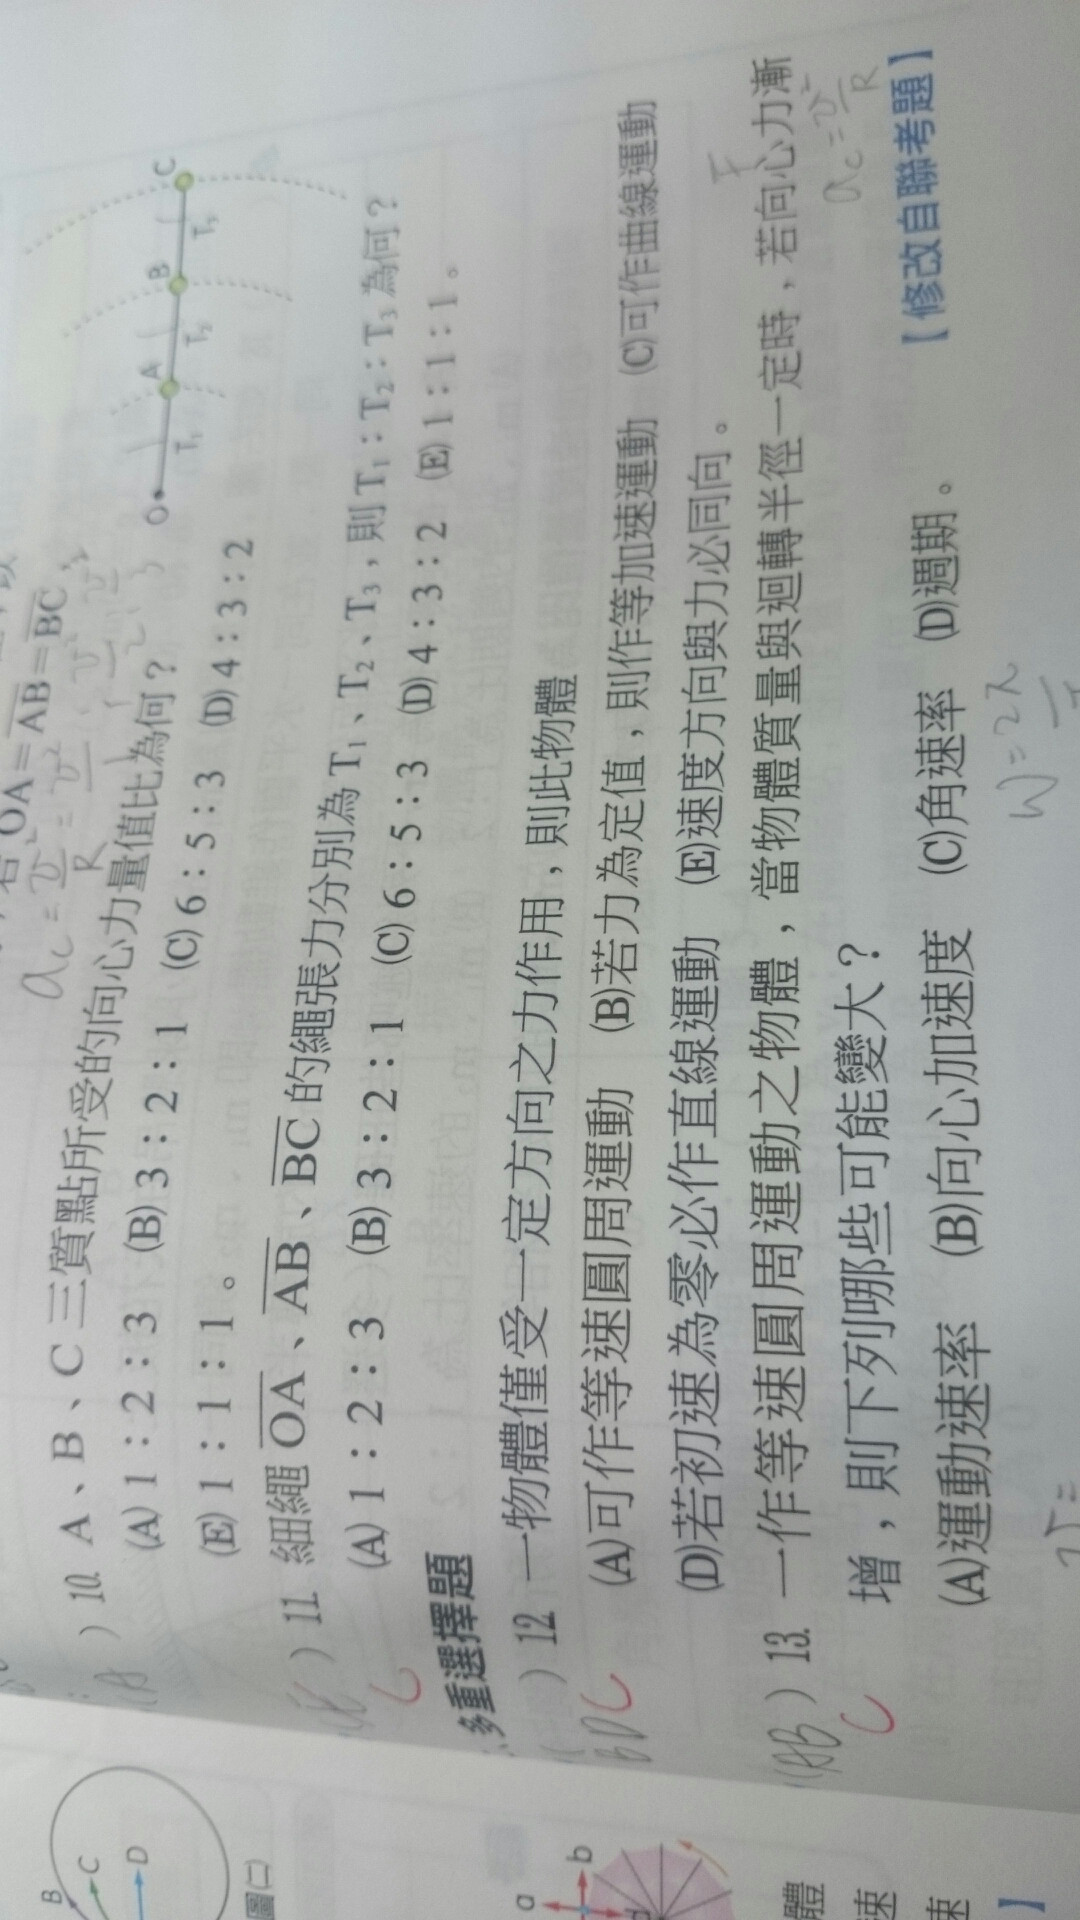 若OA=AB=BC,
ac=v²/R
)10. A、B、C三質點所受的向心力量值比為何?
(A)1:2:3 (B)3:2:1 (C)6:5:3 (D)4:3:2
(E)1:1:1。
O A B C
T₁ T₂ T₃
)11. 細繩OA、AB、BC的繩張力分別為T₁、T₂、T₃,則T₁:T₂:T₃為何?
(A)1:2:3 (B)3:2:1 (C)6:5:3 (D)4:3:2 (E)1:1:1。
C
多重選擇題
)12. 一物體僅受一定方向之力作用,則此物體
BDC
(A)可作等速圓周運動 (B)若力為定值,則作等加速運動 (C)可作曲線運動
(D)若初速為零必作直線運動 (E)速度方向與力必同向。
F
(AB)13. 一作等速圓周運動之物體,當物體質量與迴轉半徑一定時,若向心力漸
C
增,則下列哪些可能變大?
ac=v²/R
(A)運動速率 (B)向心加速度 (C)角速率 (D)週期。
【修改自聯考題】
B
C
D
圖(二)
a
b
d
體
速
速
】